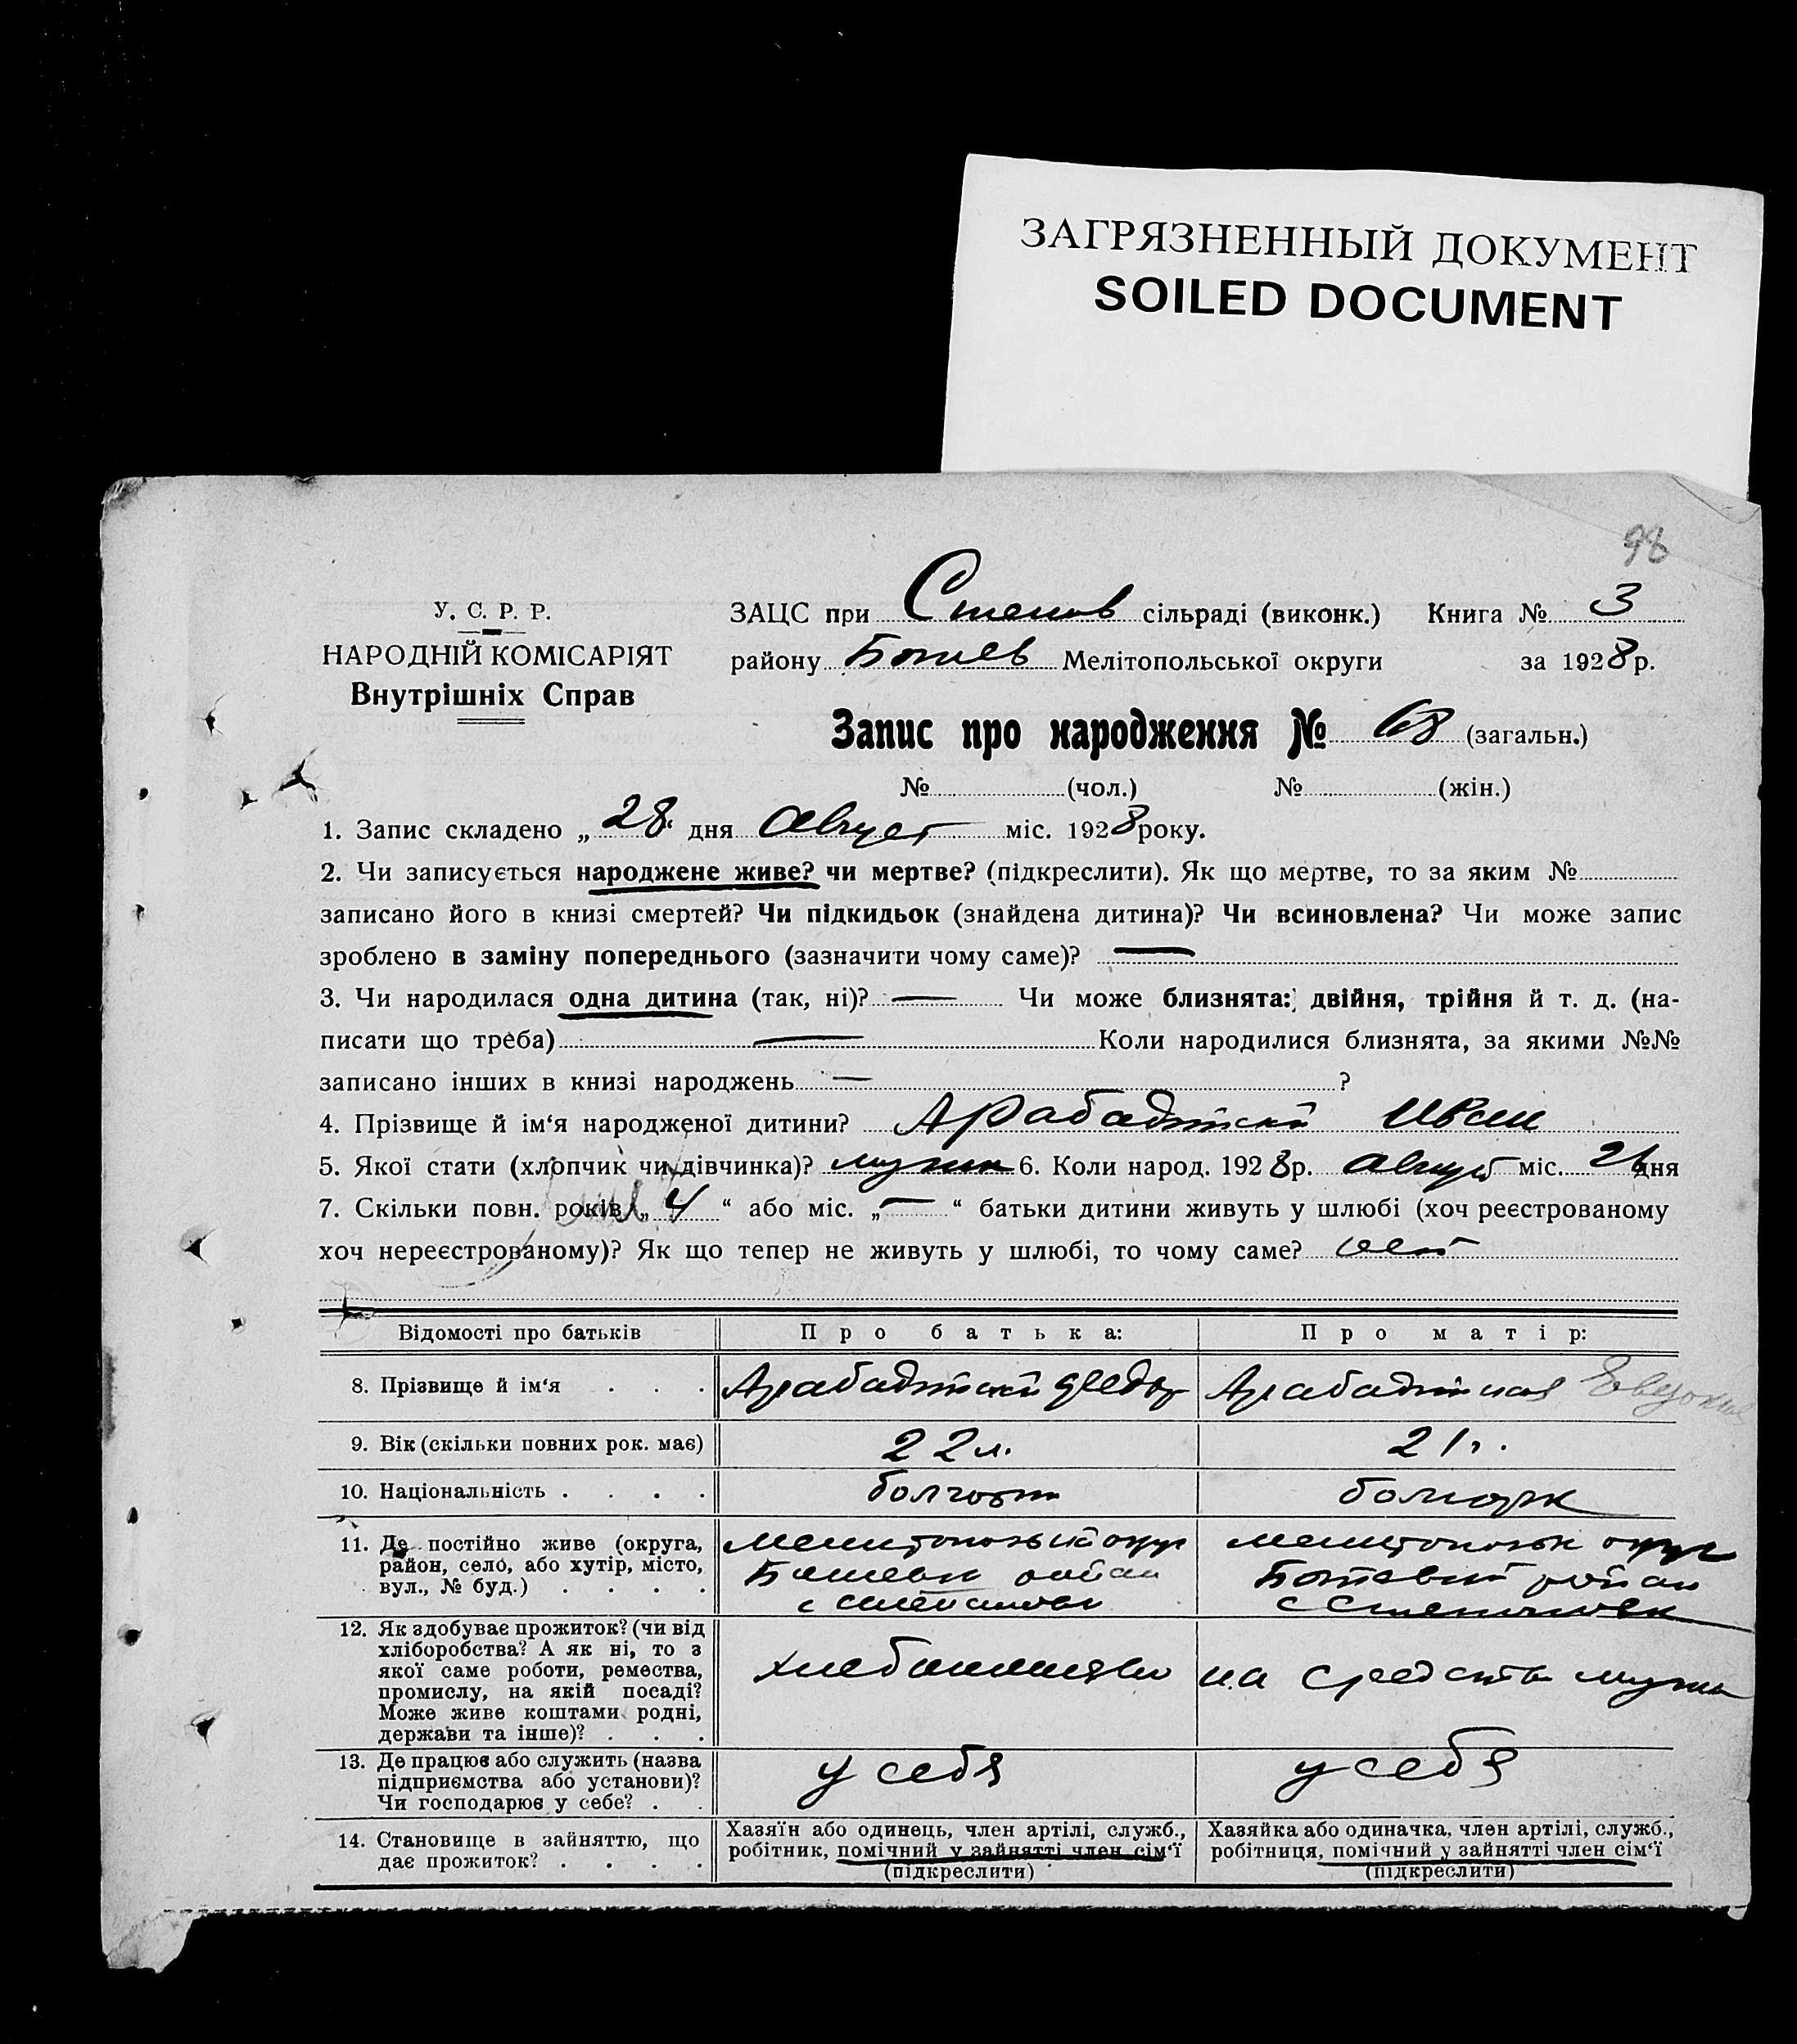 ЗАГРЯЗНЕННЫЙ ДОКУМЕНТ
SOILED DOCUMENT
98
У. С. Р. Р.
НАРОДНІЙ КОМІСАРІЯТ
Внутрішніх Справ
ЗАЦС при Степов сільраді (виконк.) Книга № 3
району Ботиев Мелітопольської округи за 1928 р.
Запис про народження № 68 (загальн.)
№ (чол.) № (жін.)
1. Запис складено „28“ дня Август міс. 1928 року.
2. Чи записується народжене живе? чи мертве? (підкреслити). Як що мертве, то за яким №
записано його в книзі смертей? Чи підкидьок (знайдена дитина)? Чи всиновлена? Чи може запис
зроблено в заміну попереднього (зазначити чому саме)? —
3. Чи народилася одна дитина (так, ні)? — Чи може близнята: двійня, трійня й т. д. (на-
писати що треба) — Коли народилися близнята, за якими №№
записано інших в книзі народжень — ?
4. Прізвище й ім‘я народженої дитини? Арабаджиский Иван
5. Якої стати (хлопчик чи дівчинка)? 6. Коли народ. 1928 р. Август міс. 26 дня
7. Скільки повн. років „4“ або міс. „—“ батьки дитини живуть у шлюбі (хоч реєстрованому
хоч нереєстрованому)? Як що тепер не живуть у шлюбі, то чому саме?
Відомості про батьків Про батька: Про матір:
8. Прізвище й ім‘я . . . Арабаджиский Федор Арабаджиская Евдокия
9. Вік (скільки повних рок. має) 22 л. 21 г.
10. Національність . . . . болгарин болгарк
11. Де постійно живе (округа, район, село, або хутір, місто, вул., № буд.) . . . .
Мелитопольский округ
район
с
Мелитопольск округ
район
с
12. Як здобуває прожиток? (чи від хліборобства? А як ні, то з якої саме роботи, ремества, промислу, на якій посаді? Може живе коштами родні, держави та інше)? . . .
хлебопашество на средства мужа
13. Де працює або служить (назва підприємства або установи)? Чи господарює у себе? . .
у себя у себя
14. Становище в зайняттю, що дає прожиток? . . . .
Хазяїн або одинець, член артілі, служб., робітник, помічний у зайнятті член сім‘ї (підкреслити)
Хазяйка або одиначка, член артілі, служб., робітниця, помічний у зайнятті член сім‘ї (підкреслити)